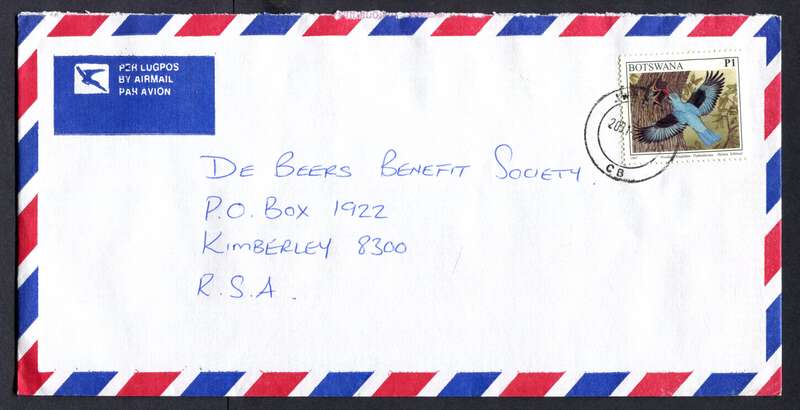 PER LUGPOS
BY AIRMAIL
PAR AVION
BOTSWANA P1
CB
DE BEERS BENEFIT SOCIETY.
P.O. BOX 1922
KIMBERLEY 8300
R.S.A.